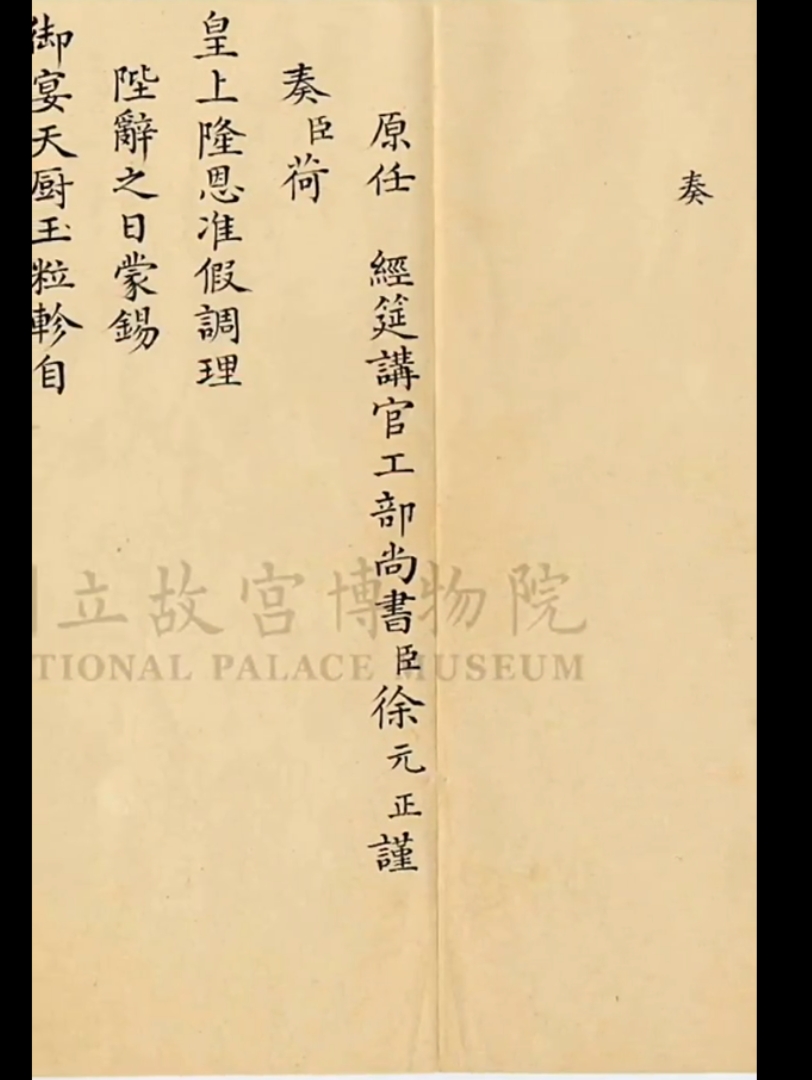 奏
原任 經筵講官工部尚書臣徐元正謹
奏臣荷
皇上隆恩准假調理
陛辭之日蒙錫
御宴天厨玉粒軫自
立故宮博物院
TIONAL PALACE MUSEUM